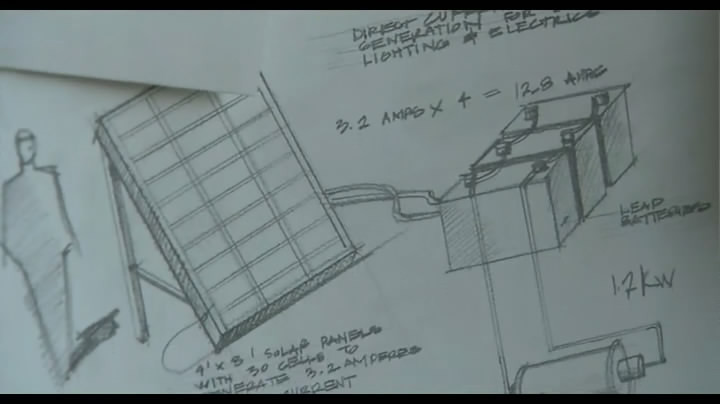 DIRECT CURRENT
GENERATION FOR
LIGHTING & ELECTRICS
3.2 AMPS X 4 = 12.8 AMPS
LEAD
BATTERIES
1.7 KW
4' X 8' SOLAR PANELS
WITH 30 CELLS TO
GENERATE 3.2 AMPERES
CURRENT